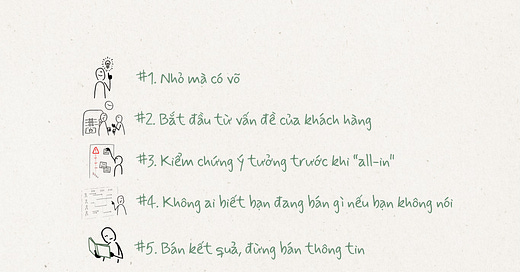 #1. Nhỏ mà có võ
#2. Bắt đầu từ vấn đề của khách hàng
#3. Kiểm chứng ý tưởng trước khi "all-in"
#4. Không ai biết bạn đang bán gì nếu bạn không nói
#5. Bán kết quả, đừng bán thông tin